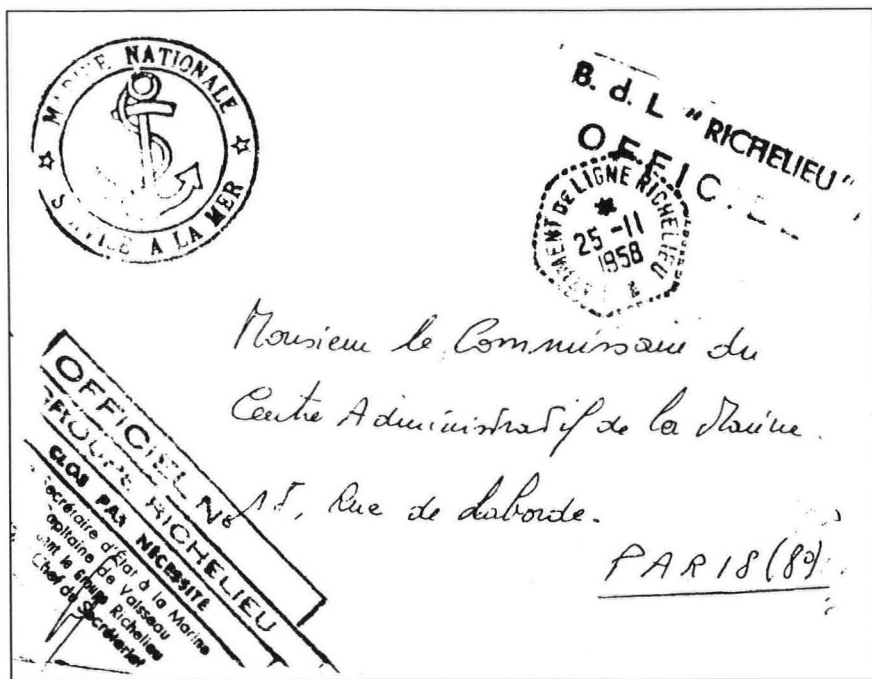 MARINE NATIONALE
SERVICE A LA MER
B. d. L "RICHELIEU"
OFFIC
BATIMENT DE LIGNE RICHELIEU
25 -11
1958
Monsieur le Commissaire du
Centre Administratif de la Marine.
15, Rue de Laborde.
PARIS (8e)
OFFICIEL No
GROUPE RICHELIEU
CLOS PAR NÉCESSITÉ
Secrétaire d'État à la Marine
Capitaine de Vaisseau
le Groupe Richelieu
Chef du Secrétariat